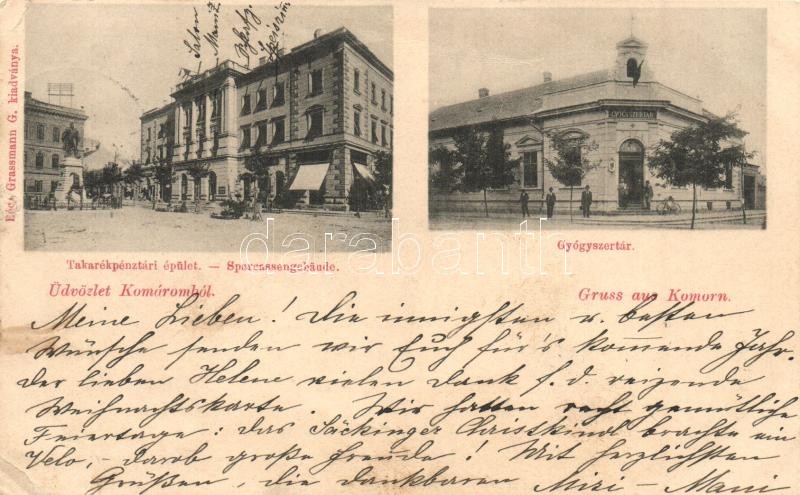 Egg, Grassmann G. kiadványa.
GYOGYSZERTÁR
Takarékpénztári épület. — Sparcassengebäude.
Gyógyszertár.
darabanth.com
Üdvözlet Komáromból.
Gruss aus Komorn.
Meine Lieben! Die innigsten u. besten
Wünsche senden wir Euch für's kommende Jahr.
Der lieben Helene vielen Dank f. d. reizende
Weihnachtskarte. Wir hatten recht gemütliche
Feiertage: das Säckinger Christkindl brachte ein
Velo, - darob große Freude! Mit herzlichsten
Grüßen, die dankbaren Mizi - Mani